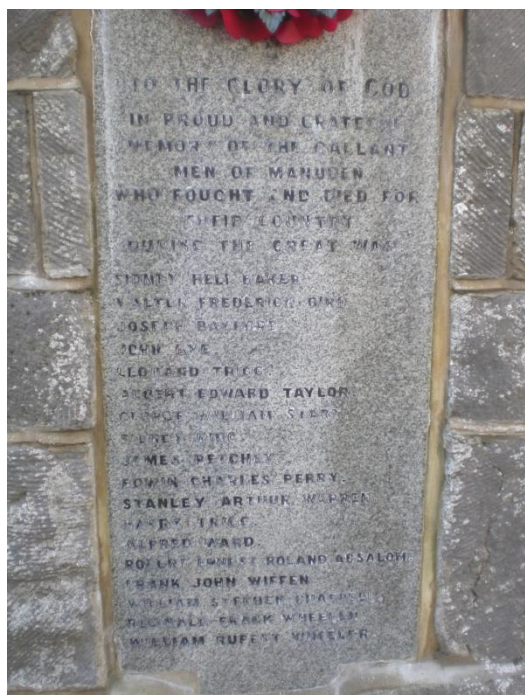 TO THE GLORY OF GOD
IN PROUD AND GRATEFUL
MEMORY OF THE GALLANT
MEN OF MANUDEN
WHO FOUGHT AND DIED FOR
THEIR COUNTRY
DURING THE GREAT WAR
SIDNEY HELI BAKER
WALTER FREDERICK
JOSEPH
JOHN
LEONARD TRIGG
ALBERT EDWARD TAYLOR
GEORGE WILLIAM
SIDNEY KING
JAMES PETCHEY
EDWIN CHARLES PERRY
STANLEY ARTHUR WARREN
HARRY
ALFRED WARD
ROBERT ERNEST ROLAND ABSALOM
FRANK JOHN WIFFEN
WILLIAM STEPHEN
REGINALD FRANK WHEELER
WILLIAM RUPERT WHEELER